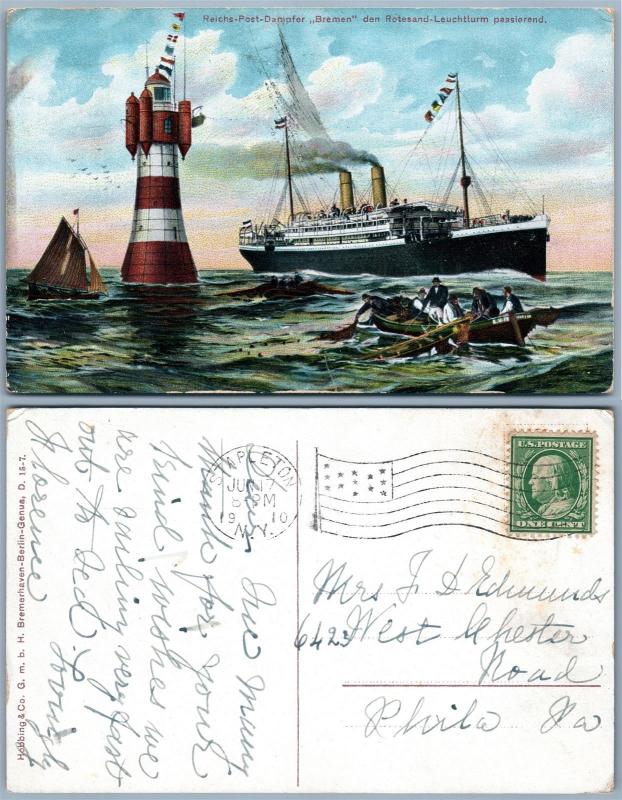 Reichs-Post-Dampfer „Bremen" den Rotesand-Leuchtturm passierend.
Hobbing & Co. G. m. b. H. Bremerhaven-Berlin-Genua, D. 15-7.
thanks for your
kind wishes we
are smiling very fast
out to sea. Lovingly
Florence
STAPLETON
JUN 17
8 PM
19 10
N.Y.
U.S. POSTAGE
ONE CENT
Mrs F D Edmunds
6423 West Chester
Road
Phila Pa